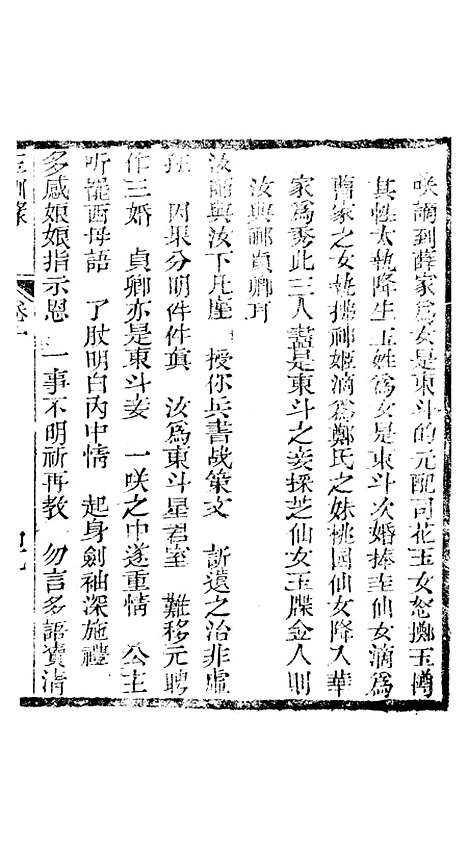 咲謫到薛家爲女是東斗的元配司花玉女怒擲玉樽
其性太執降生王姓爲女是東斗次婚捧圭仙女滴爲
曹家之女執拂祁姬滴爲鄭氏之妹桃園仙女降入華
家爲秀此三人盡是東斗之妾採芝仙女玉牒金人則
汝與祁貞卿耳
汝師與汝下凡座 授你兵書战策文 訢遠之治非虛
 因果分明件件眞 汝爲東斗星君室 難移元聘
作三婚 貞卿亦是東斗妾 一咲之中遂重情 公主
听罷西母語 了肢明白丙中情 起身劍袖深施禮
多感娘娘指示恩 一事不明祈再教 勿言多語瀆清
卷一